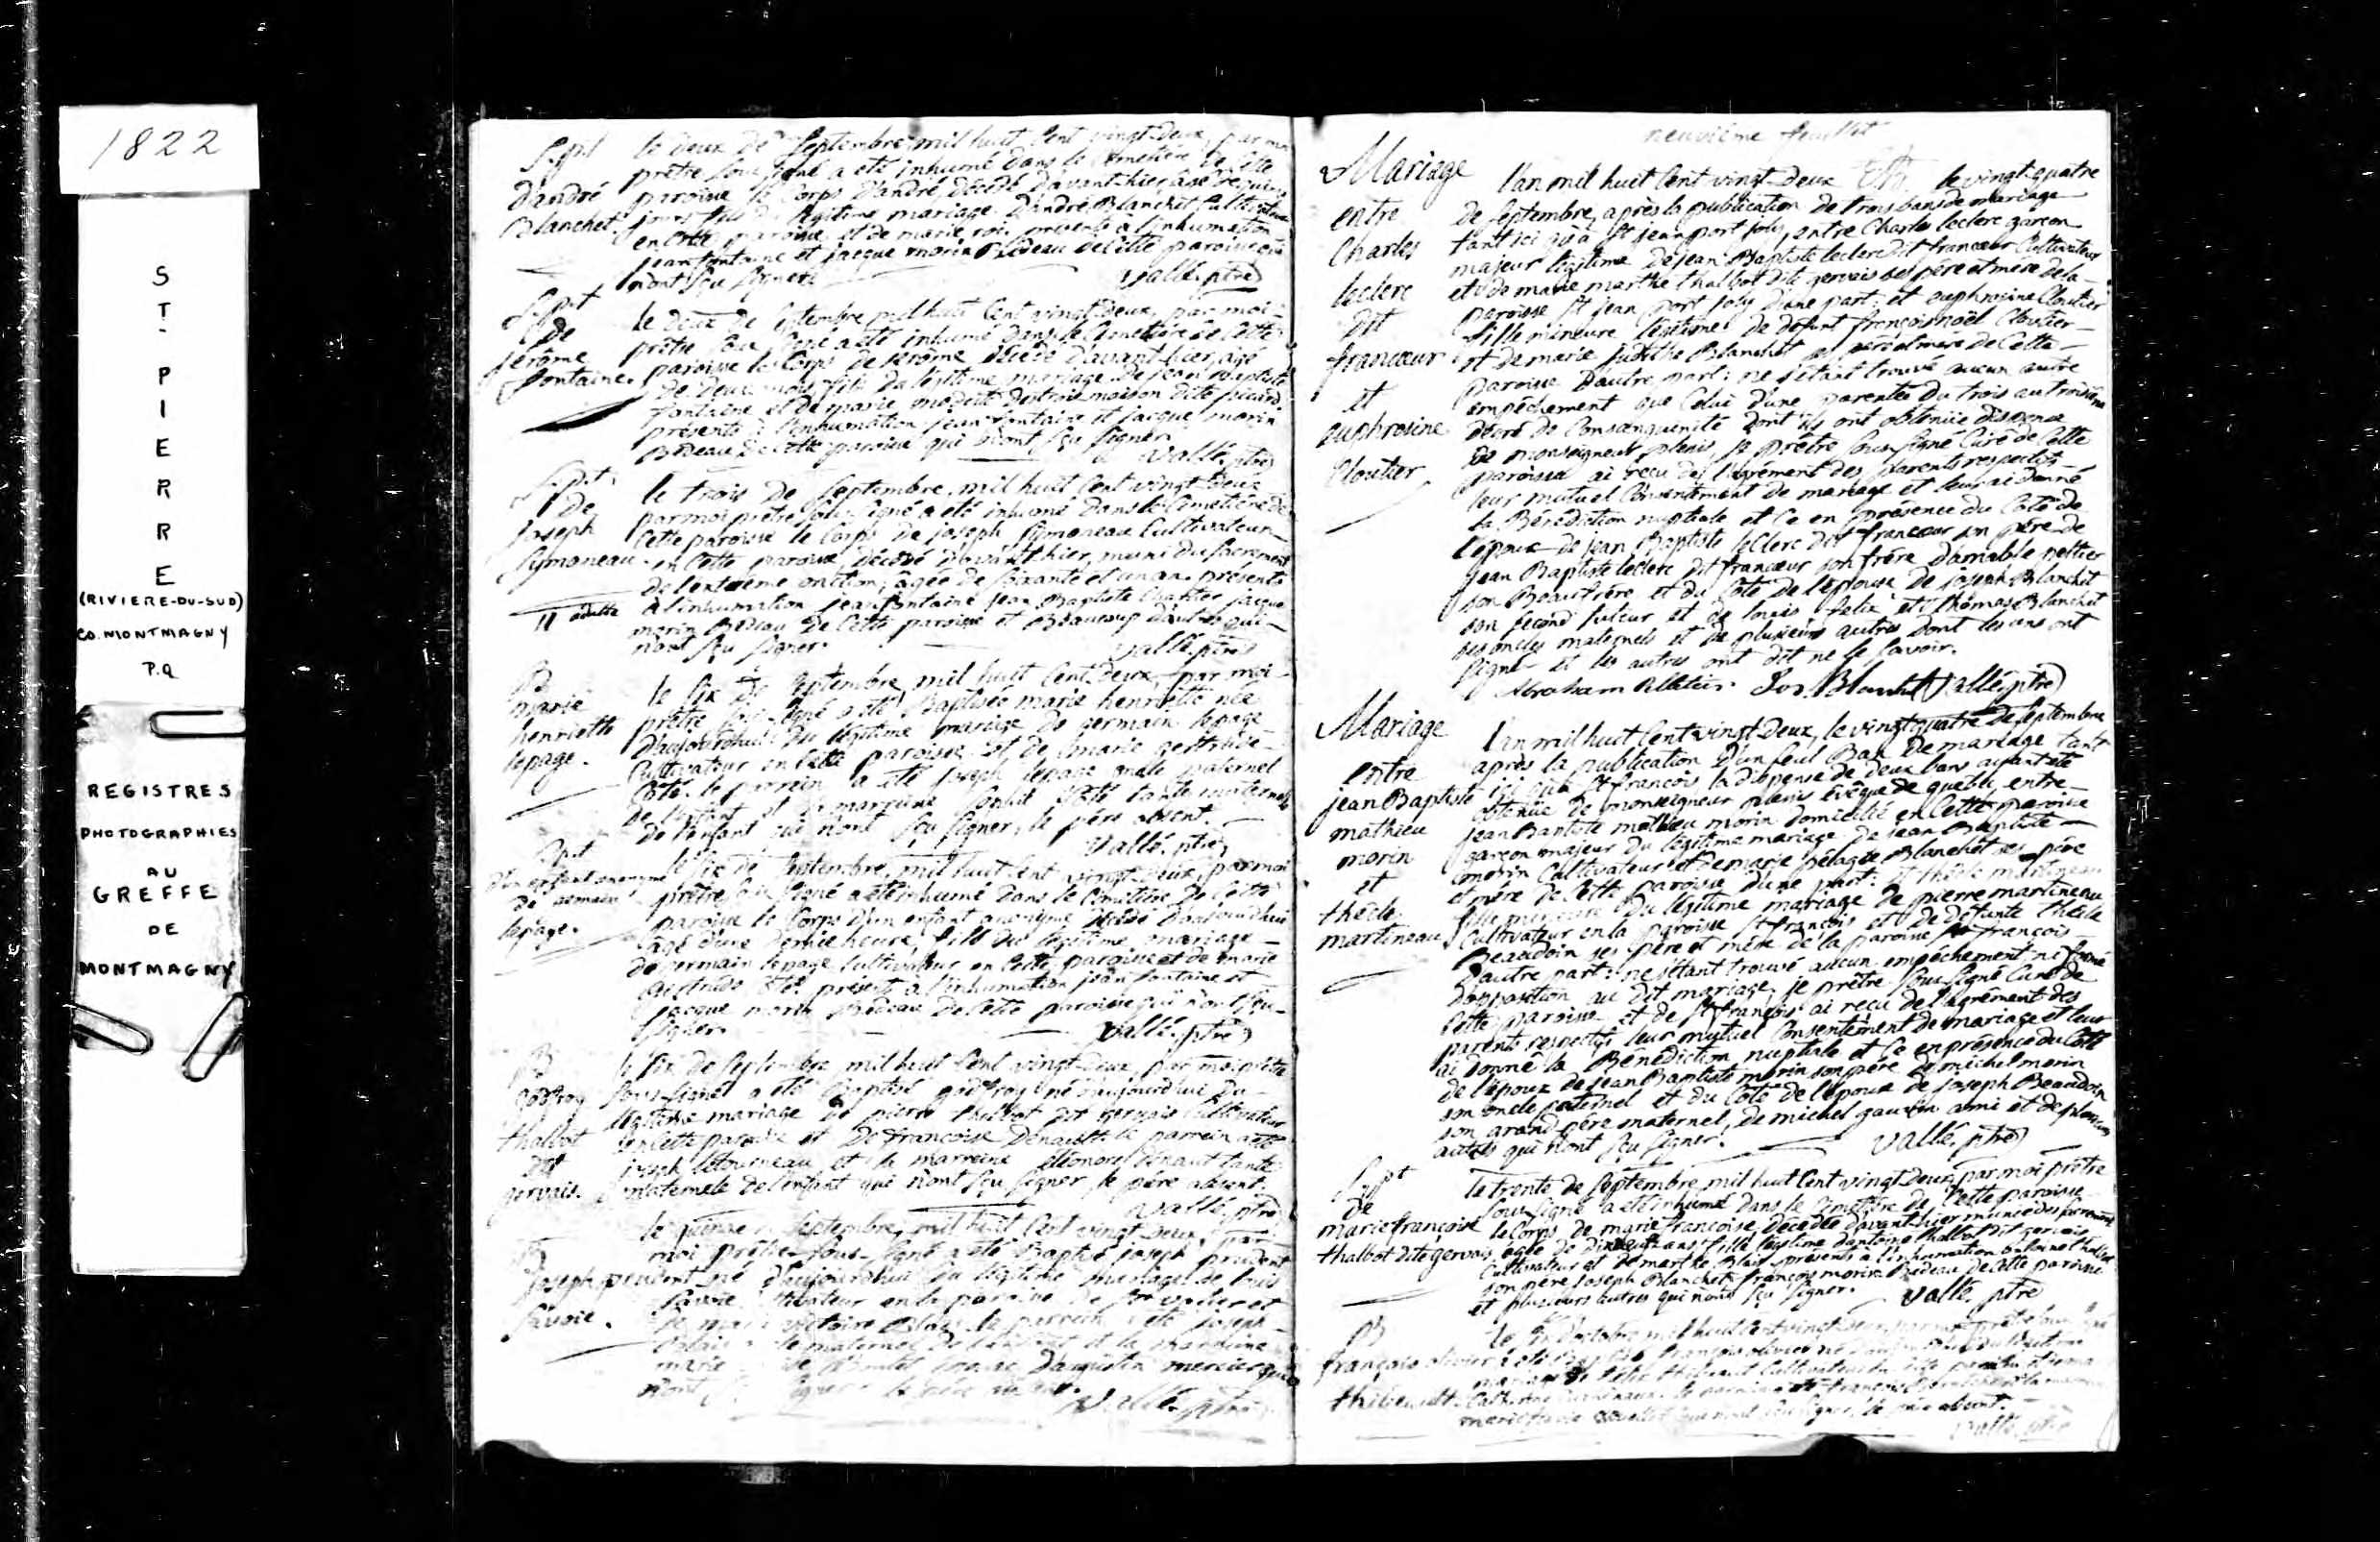 1822
ST-PIERRE
(RIVIERE-DU-SUD)
CO. MONTMAGNY
P.Q
REGISTRES
PHOTOGRAPHIES
AU
GREFFE
DE
MONTMAGNY
Sept
d'andré
Blanchet
le deux de Septembre mil huit Cent vingt-deux, par moi
prêtre Sous signé a été inhumé dans le Cimetière de Cette
paroisse le Corps d'andré, décédé d'avant-hier, âgé de quinze
jours fils du légitime mariage d'andré Blanchet Cultivateur
en Cette paroisse et de marie roi, présents à l'inhumation
jean fontaine et jacque morin Bedeau de Cette paroisse qui
n'ont sçu signer.
Vallé. ptre
Spt
de
jérôme
fontaine.
le deux de Septembre mil huit Cent vingt-deux, par moi
prêtre Sous signé a été inhumé dans le Cimetière de Cette
paroisse le Corps de jérôme décédé d'avant-hier, agé
de deux mois fils du légitime mariage de jean Baptiste
fontaine et de marie modeste destroismaison dite picard
présents à l'inhumation jean fontaine et jacque morin
Bedeau de Cette paroisse qui n'ont sçu signer.
Vallé. ptre
Spt
de
joseph
Symoneau
11 adulte
le trois de Septembre, mil huit Cent vingt deux
par moi prêtre, sous signé a été inhumé dans le Cimetière de
Cette paroisse le Corps de joseph Symoneau Cultivateur
en Cette paroisse, décédé d'avant-hier, muni du sacrement
de l'extrème onction, âgée de soixante et un an. présents
à l'inhumation jean fontaine jean Baptiste jacque
morin Bedeau de Cette paroisse et Beaucoup d'autres qui
n'ont sçu signer.
Vallé. ptre
B
marie
henriette
lepage.
le six de Septembre, mil huit Cent deux, par moi
prêtre sous-signé a été Baptisée marie henriette née
d'aujourd'hui du légitime mariage de germain lepage
Cultivateur en Cette paroisse et de marie gertrude
Côté. le parrein a été joseph lepage oncle paternel
de l'enfant et la marreine Côté tante maternelle
de l'enfant qui n'ont sçu signer, le père absent.
Vallé. ptre
Spt
d'un enfant anonyme
de germain
lepage.
le six de Septembre, mil huit Cent vingt deux, par moi
prêtre sous signé a été inhumé dans le Cimetière de Cette
paroisse le Corps d'un enfant anonyme décédé d'aujourd'hui
agé d'une demie heure, fils du légitime mariage
de germain lepage Cultivateur en Cette paroisse et de marie
gertrude Côté. présents à l'inhumation jean fontaine et
jacque morin Bedeau de Cette paroisse qui n'ont sçu
signer.
Vallé. ptre
B
godfroy
thalbot
dit
gervais.
le six de Septembre mil huit Cent vingt-deux, par moi prêtre
sous-signé a été Baptisé godfroy né d'aujourd'hui du
légitime mariage de pierre thalbot dit gervais Cultivateur
en Cette paroisse et de françoise Denault. le parrein a été
joseph létourneau et la marreine éléonore Dénaut tante
maternele de l'enfant qui n'ont sçu signer le père absent.
Vallé. ptre
B
joseph prudent
Savoie.
le quinze Septembre, mil huit Cent vingt deux, par
moi prêtre sous-signé a été Baptisé joseph prudent
né d'aujourd'hui du légitime mariage de louis
Savoie Cultivateur en la paroisse de St valier et
de marie victoire Blais. le parrein a été joseph
Blais maternel de l'enfant et la marreine
marie d'augustin mercier qui
n'ont sçu signer. le père
Vallé. ptre
neuvième feuillet
Mariage
entre
Charles
leclerc
dit
francœur
et
euphrosine
Cloutier
l'an mil huit Cent vingt-deux le vingt-quatre
de Septembre, après la publication de trois bans de mariage
tant ici qu'à St jean port joly, entre Charles leclerc garçon
majeur légitime de jean Baptiste leclerc dit francœur Cultivateur
et de marie marthe thalbot dite gervais ses père et mère de la
paroisse St jean port joly d'une part; et euphrosine Cloutier
fille mineure légitime de défunt françois noël Cloutier
et de marie judithe Blanchet ses père et mère de Cette
paroisse d'autre part: ne s'étant trouvé aucun autre
empêchement que Celui d'une parenté du trois au troisième
degré de Consanguinité dont ils ont obtenüe dispense
de monseigneur plessis, je prêtre sous signé Curé de Cette
paroisse ai reçu de l'agrément des parents respectifs
leur mutuel Consentement de mariage et leur ai donné
la Bénédiction nuptiale et Ce en présence du Coté de
l'époux de jean Baptiste leclerc dit francœur son père de
jean Baptiste leclerc dit francœur son frère d'amable peltier
son Beaufrère et du Coté de l'épouse de joseph Blanchet
son second tuteur et de louis felix et thomas Blanchet
ses oncles maternels et de plusieurs autres dont les uns ont
signé et les autres ont dit ne le savoir.
Abraham Pelletier. Jos. Blanchet Vallé. ptre
Mariage
entre
jean Baptiste
mathieu
morin
et
thècle
martineau
l'an mil huit Cent vingt-deux, le vingt quatre de Septembre
après la publication d'un seul Ban de mariage tant
ici qu'à St françois la dispense de deux bans ayant été
obtenüe de monseigneur plessis évêque de quebec, entre
jean Baptiste mathieu morin domicilié en Cette paroisse
garçon majeur du légitime mariage de jean Baptiste
morin Cultivateur et de marie pélagie Blanchet ses père
et mère de Cette paroisse d'une part: et thècle martineau
fille mineure du légitime mariage de pierre martineau
Cultivateur en la paroisse St françois et de défunte thècle
Beaudoin ses père et mère de la paroisse St françois
d'autre part: ne s'étant trouvé aucun empêchement ni formé
d'opposition au dit mariage, je prêtre sous signé Curé de
Cette paroisse et de St françois ai reçu de l'agrément des
parents respectifs leur mutuel Consentement de mariage et leur
ai donné la Bénédiction nuptiale et Ce en présence du Coté
de l'époux de jean Baptiste morin son père de michel morin
son oncle paternel et du Coté de l'épouse de joseph Beaudoin
son grand père maternel, de michel gaudin ami et de plusieurs
autres qui n'ont sçu signer.
Vallé. ptre
Sept
de
marie françoise
thalbot dite gervais
le trente de Septembre, mil huit Cent vingt deux, par moi prêtre
sous-signé a été inhumé dans le Cimetière de Cette paroisse
le Corps de marie françoise, décédée d'avant-hier munie des sacrements
agée de ans fille légitime d'antoine thalbot dit gervais
Cultivateur et de marthe Blais. présents à l'inhumation antoine thalbot
son père joseph Blanchet françois morin Bedeau de Cette paroisse
et plusieurs autres qui n'ont sçu signer.
Vallé. ptre
B
françois olivier
thibeault
le d'octobre mil huit Cent vingt deux, par moi prêtre sous signé
a été Baptisé françois olivier né
mariage de thibeault Cultivateur
Catherine le parrein a été françois
marie qui n'ont sçu signer, le père absent.
Vallé. ptre